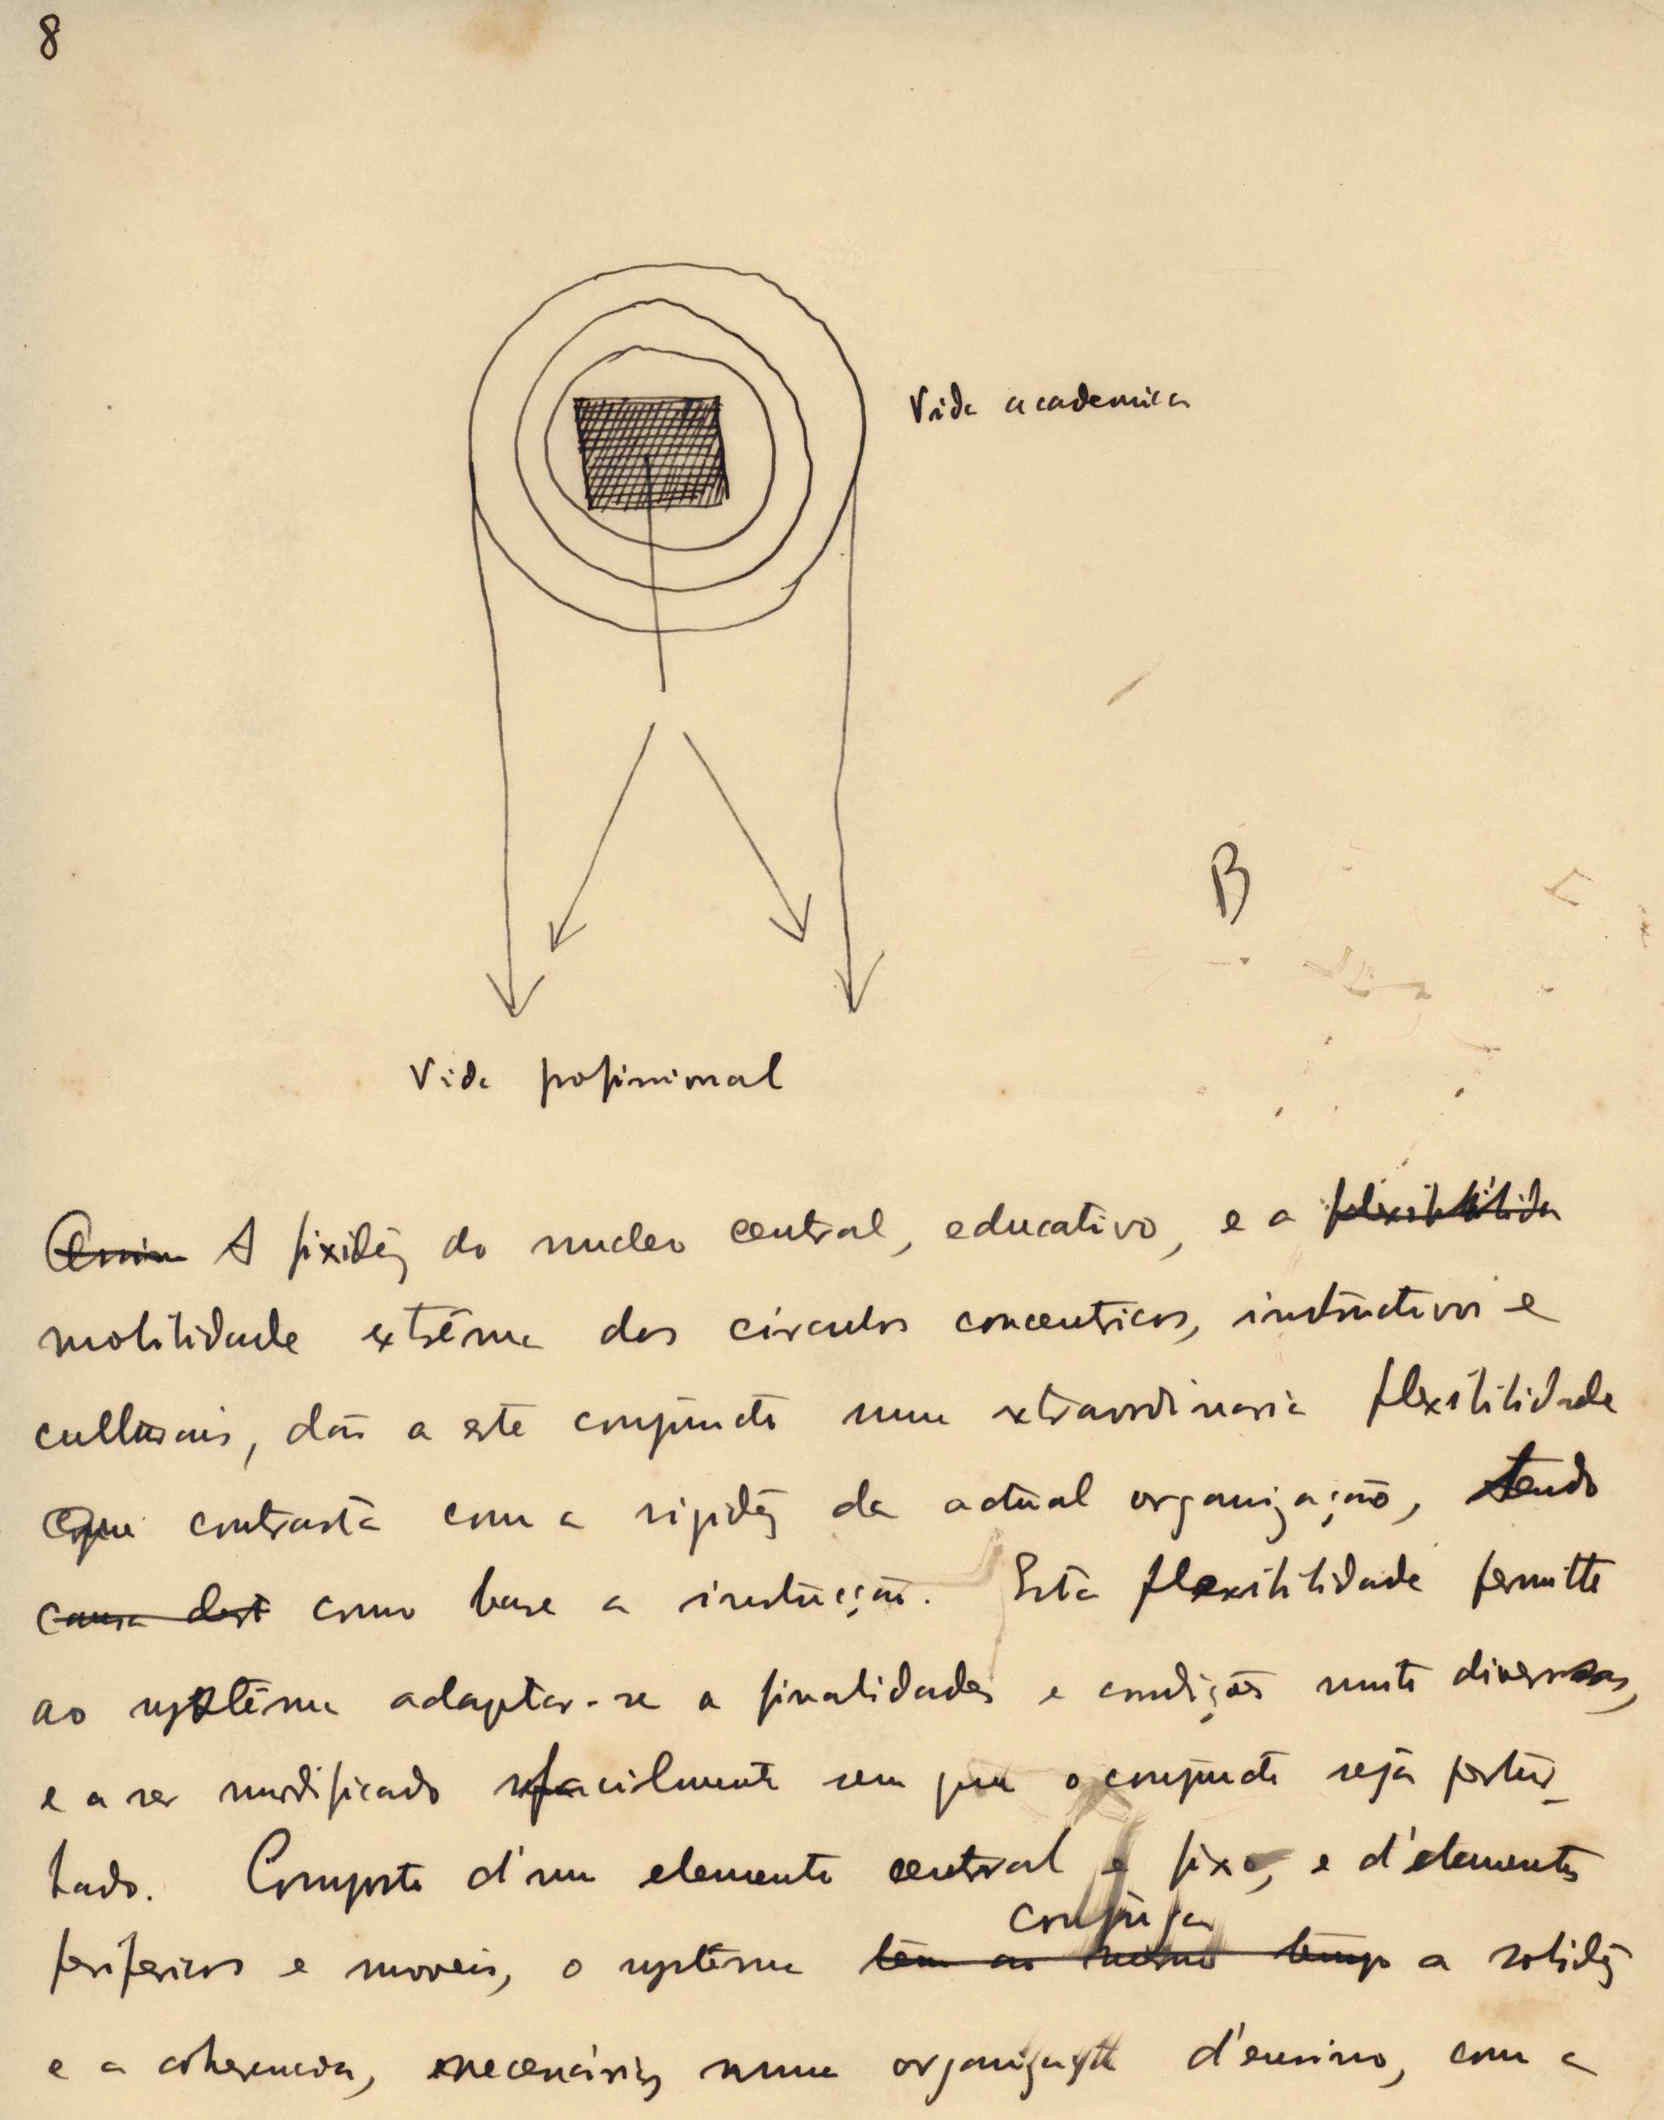 8
Vida academica
B
Vida profissional
Assim A fixidez do nucleo central, educativo, e a flexibilida
mobilidade extrêma dos circulos concentricos, instructivos e
culturais, dão a este conjuncto uma extraordinaria flexibilidade
que contrasta com a rigidez da actual organização, tendo
causa dest como base a instrucção. Esta flexibilidade permitte
ao systêma adaptar-se a finalidades e condições muito diversas,
e a ser modificado facilmente sem que o conjuncto seja pertur-
bado. Composto d'um elemento central e fixo, e d'elementos
conjuga
perifericos e moveis, o systêma têm ao mesmo tempo a solidez
e a coherencia, necessárias numa d'ensino, com a